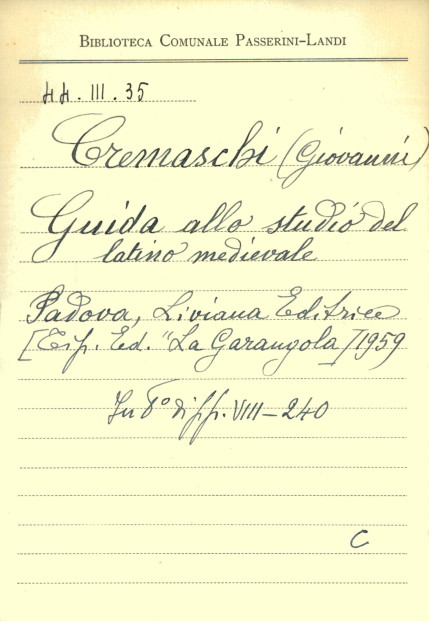 BIBLIOTECA COMUNALE PASSERINI-LANDI
44. III. 35
Cremaschi (Giovanni)
Guida allo studio del
latino medievale
Padova, Liviana Editrice
[Tip. Ed. "La Garangola] 1959
In 8° di pp. VIII-240
C